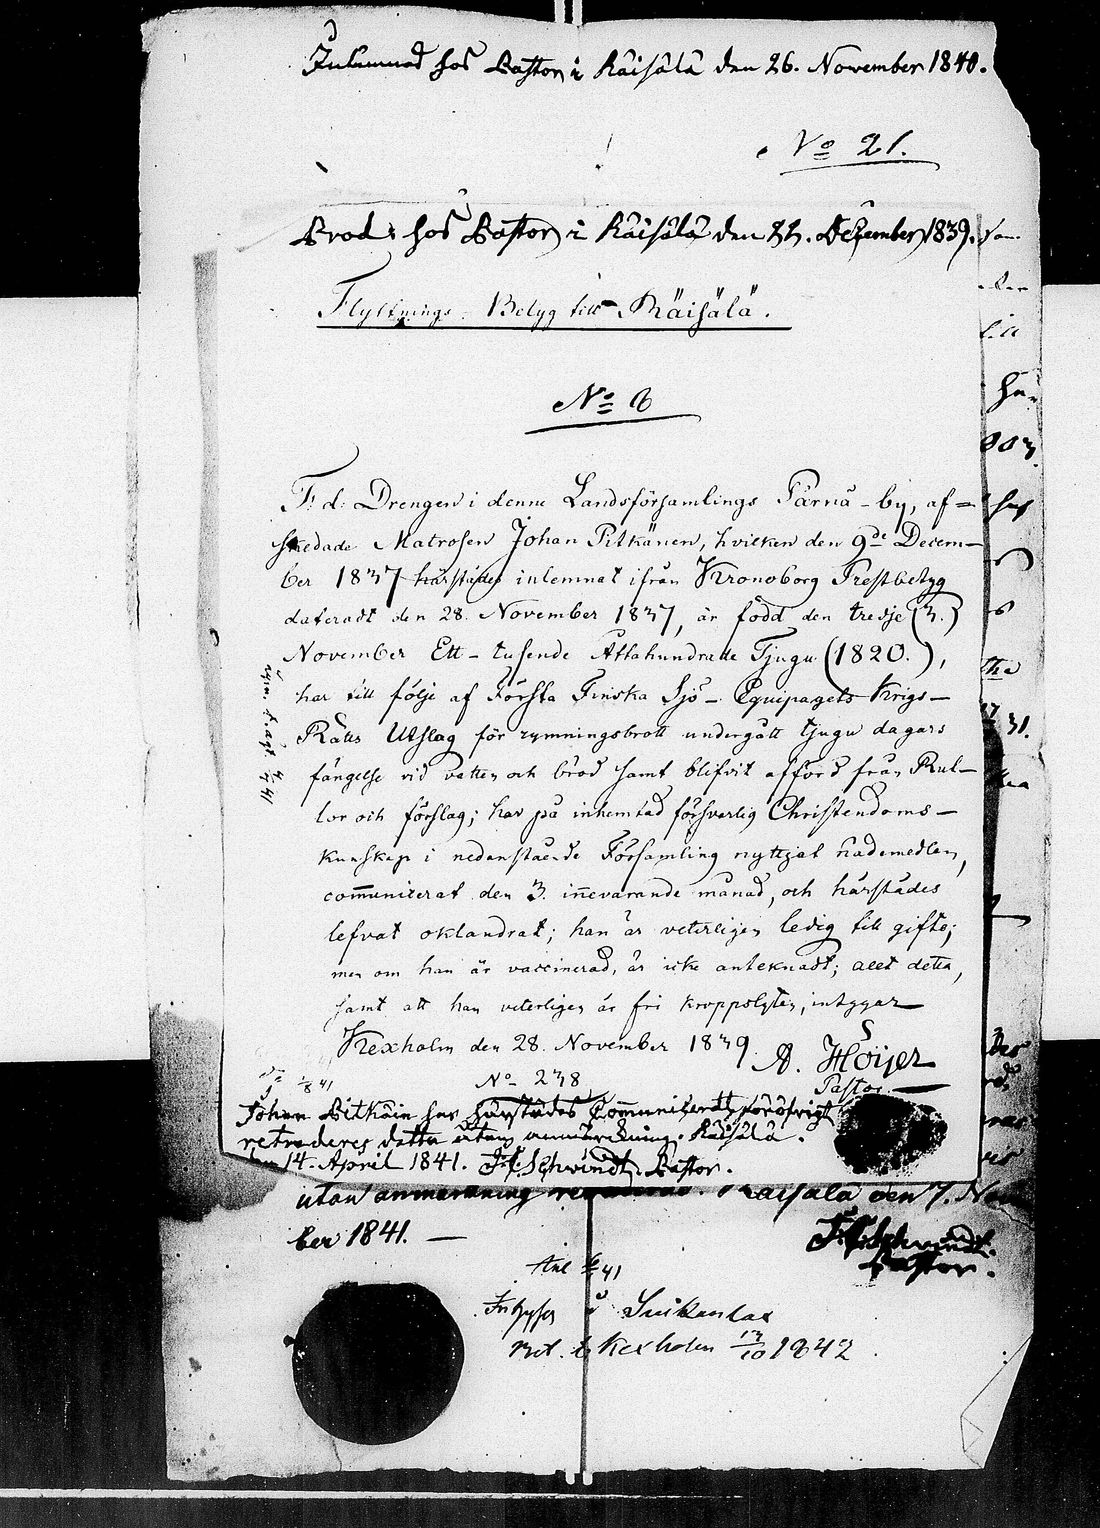 Inlemnad hos Pastor i Räisälä den 26. November 1840.
No 21.
Prod: hos Pastor i Räisälä den 22. December 1839.
Flyttnings-Betyg till Räisälä.
No 6
F: d: Drengen i denne Landsförsamlings Tärnä-by, af-
skedade Matrosen Johan Pitkänen, hvilken den 9de Decem-
ber 1837 härstädes inlemnat ifrån Kronoborg Prestbetyg
dateradt den 28. November 1837, är född den tredje (3.)
November Ett-tusende Åttahundrade Tjugu (1820.),
har till följe af Första Finska Sjö-Equipagets Krigs-
Rätts Utslag för rymningsbrott undergått tjugu dagars
fängelse vid vatten och bröd samt blifvit afförd från Rul-
lor och förslag; har på inhemtad försvarlig Christendoms-
kunskap i nedanstående Församling nyttjat nådemedlen,
com̅unicerat den 3. in̅evarande månad, och härstädes
lefvat oklandrat; han är veterligen ledig till gifte;
men om han är vaccinerad, är icke anteknadt; allt detta,
samt att han veterligen är fri kroppslyten, intygar
Kexholm den 28. November 1839. A. Höijer
Pastor.
No 238
Johan Pitkäin har härstädes Communicerat, för öfrigt
retraderes detta utan anmärkning. Räisälä.
den 14. April 1841. Schvindt. Pastor.
utan anmärkning Räisälä den 7. Novem
ber 1841.
Schvindt.
Pastor.
Suikanlax
Ret. t. Kexholm 13/10 1842